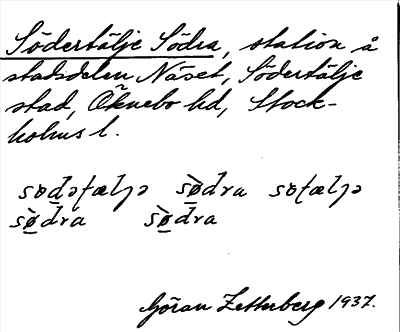 Södertälje Södra, station å
stadsdelen Näset, Södertälje
stad, Öknebo hd, Stock-
holms l.
sødra
sø̀dra sø̀dra
Göran Zetterberg 1937.